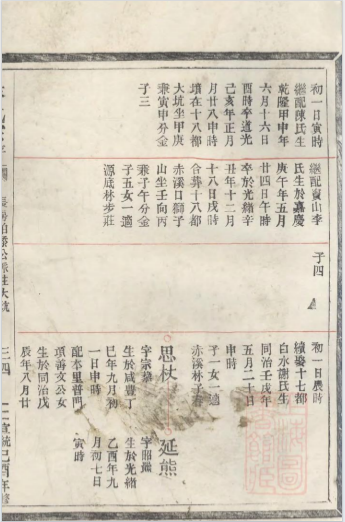 初一日寅時
繼配陳氏生
乾隆甲申年
六月十六日
酉時卒道光
己亥年正月
月廿八申時
墳在十八都
大坑坐甲庚
兼寅申分金
子三
繼配山李
氏生於嘉慶
庚午年五月
廿四日午時
卒於光緒辛
丑年十二月
十八日戌時
合葬十八都
赤溪口獅子
山坐壬向丙
兼子午分金
子五女一適
源底林步莊
子四
初一日辰時
續娶十七都
白水謝氏生
同治壬戌年
五月二十日
申時
子一女一適
赤溪林子
思杖
字宗榮
生於咸豐丁
巳年九月初
一日申時
配本里普門
項善文公女
生於同治戊
辰年八月廿
延熊
字昭
生於光緒
乙酉年九
月初七日
寅時
三四
宣統己酉年